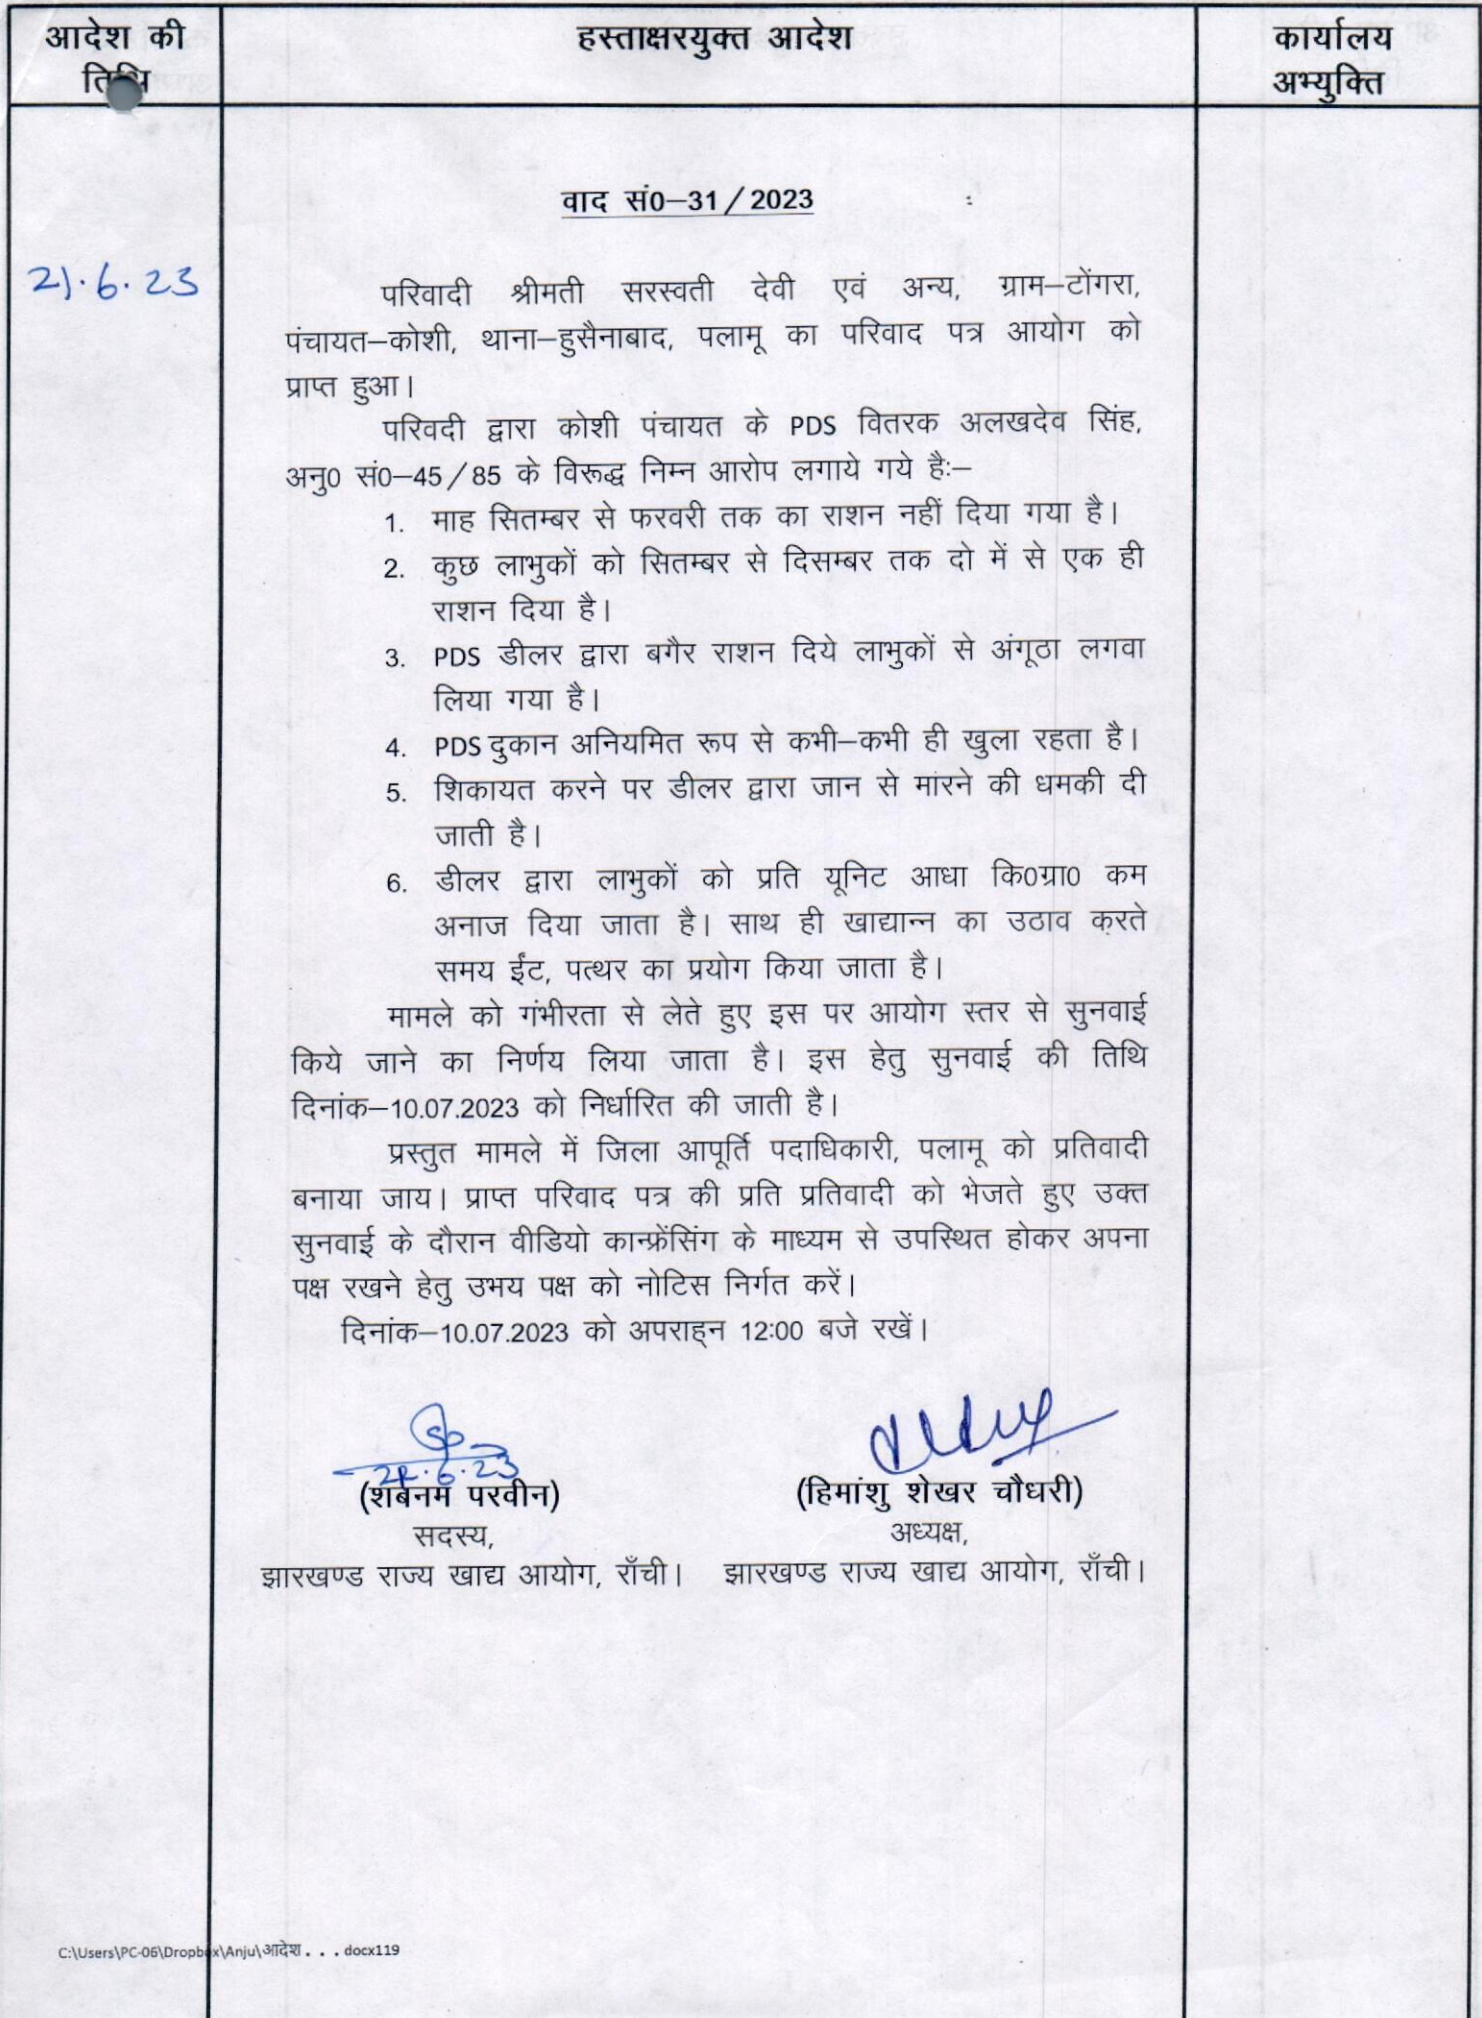 आदेश की
हस्ताक्षरयुक्त आदेश
कार्यालय
तिथि
अभ्युक्ति
वाद सं0–31/2023
21.6.23
परिवादी श्रीमती सरस्वती देवी एवं अन्य, ग्राम–टोंगरा,
पंचायत–कोशी, थाना–हुसैनाबाद, पलामू का परिवाद पत्र आयोग को
प्राप्त हुआ।
परिवदी द्वारा कोशी पंचायत के PDS वितरक अलखदेव सिंह,
अनु0 सं0–45/85 के विरूद्ध निम्न आरोप लगाये गये है:–
1. माह सितम्बर से फरवरी तक का राशन नहीं दिया गया है।
2. कुछ लाभुकों को सितम्बर से दिसम्बर तक दो में से एक ही
राशन दिया है।
3. PDS डीलर द्वारा बगैर राशन दिये लाभुकों से अंगूठा लगवा
लिया गया है।
4. PDS दुकान अनियमित रूप से कभी–कभी ही खुला रहता है।
5. शिकायत करने पर डीलर द्वारा जान से मारने की धमकी दी
जाती है।
6. डीलर द्वारा लाभुकों को प्रति यूनिट आधा कि0ग्रा0 कम
अनाज दिया जाता है। साथ ही खाद्यान्न का उठाव करते
समय ईंट, पत्थर का प्रयोग किया जाता है।
मामले को गंभीरता से लेते हुए इस पर आयोग स्तर से सुनवाई
किये जाने का निर्णय लिया जाता है। इस हेतु सुनवाई की तिथि
दिनांक–10.07.2023 को निर्धारित की जाती है।
प्रस्तुत मामले में जिला आपूर्ति पदाधिकारी, पलामू को प्रतिवादी
बनाया जाय। प्राप्त परिवाद पत्र की प्रति प्रतिवादी को भेजते हुए उक्त
सुनवाई के दौरान वीडियो कान्फ्रेंसिंग के माध्यम से उपस्थित होकर अपना
पक्ष रखने हेतु उभय पक्ष को नोटिस निर्गत करें।
दिनांक–10.07.2023 को अपराह्न 12:00 बजे रखें।
21.6.23
(शबनम परवीन) (हिमांशु शेखर चौधरी)
सदस्य, अध्यक्ष,
झारखण्ड राज्य खाद्य आयोग, राँची। झारखण्ड राज्य खाद्य आयोग, राँची।
C:\Users\PC-06\Dropbox\Anju\आदेश . . . docx119